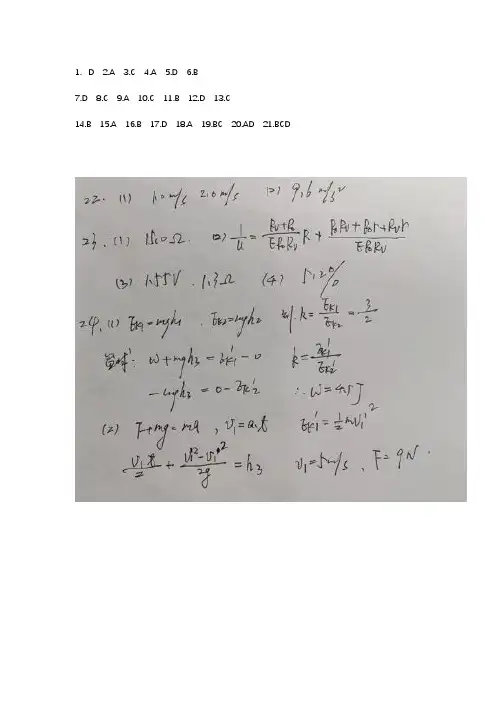 1. D 2.A 3.C 4.A 5.D 6.B
7.D 8.C 9.A 10.C 11.B 12.D 13.C
14.B 15.A 16.B 17.D 18.A 19.BC 20.AD 21.BCD
22. (1) 1.0 m/s 2.0 m/s (2) 9.6 m/s²
23. (1) 15.0 Ω. (2) 1/U = (RV+R0)/(ER0RV) R + (R0RV+R0r+RVr)/(ER0RV)
(3) 1.55V . 1.3Ω (4) 5.2%
24. (1) Ek1=mgh1 . Ek2=mgh2 k=Ek1/Ek2=3/2
W+mgh3=Ek1'-0 k=Ek1'/Ek2'
-mgh3=0-Ek2' ∴W=4.5J
(2) F+mg=ma , v1=at Ek1'=½mv1'²
v1t/2 + (v1'²-v1²)/2g = h3 v1=5m/s , F=9N.